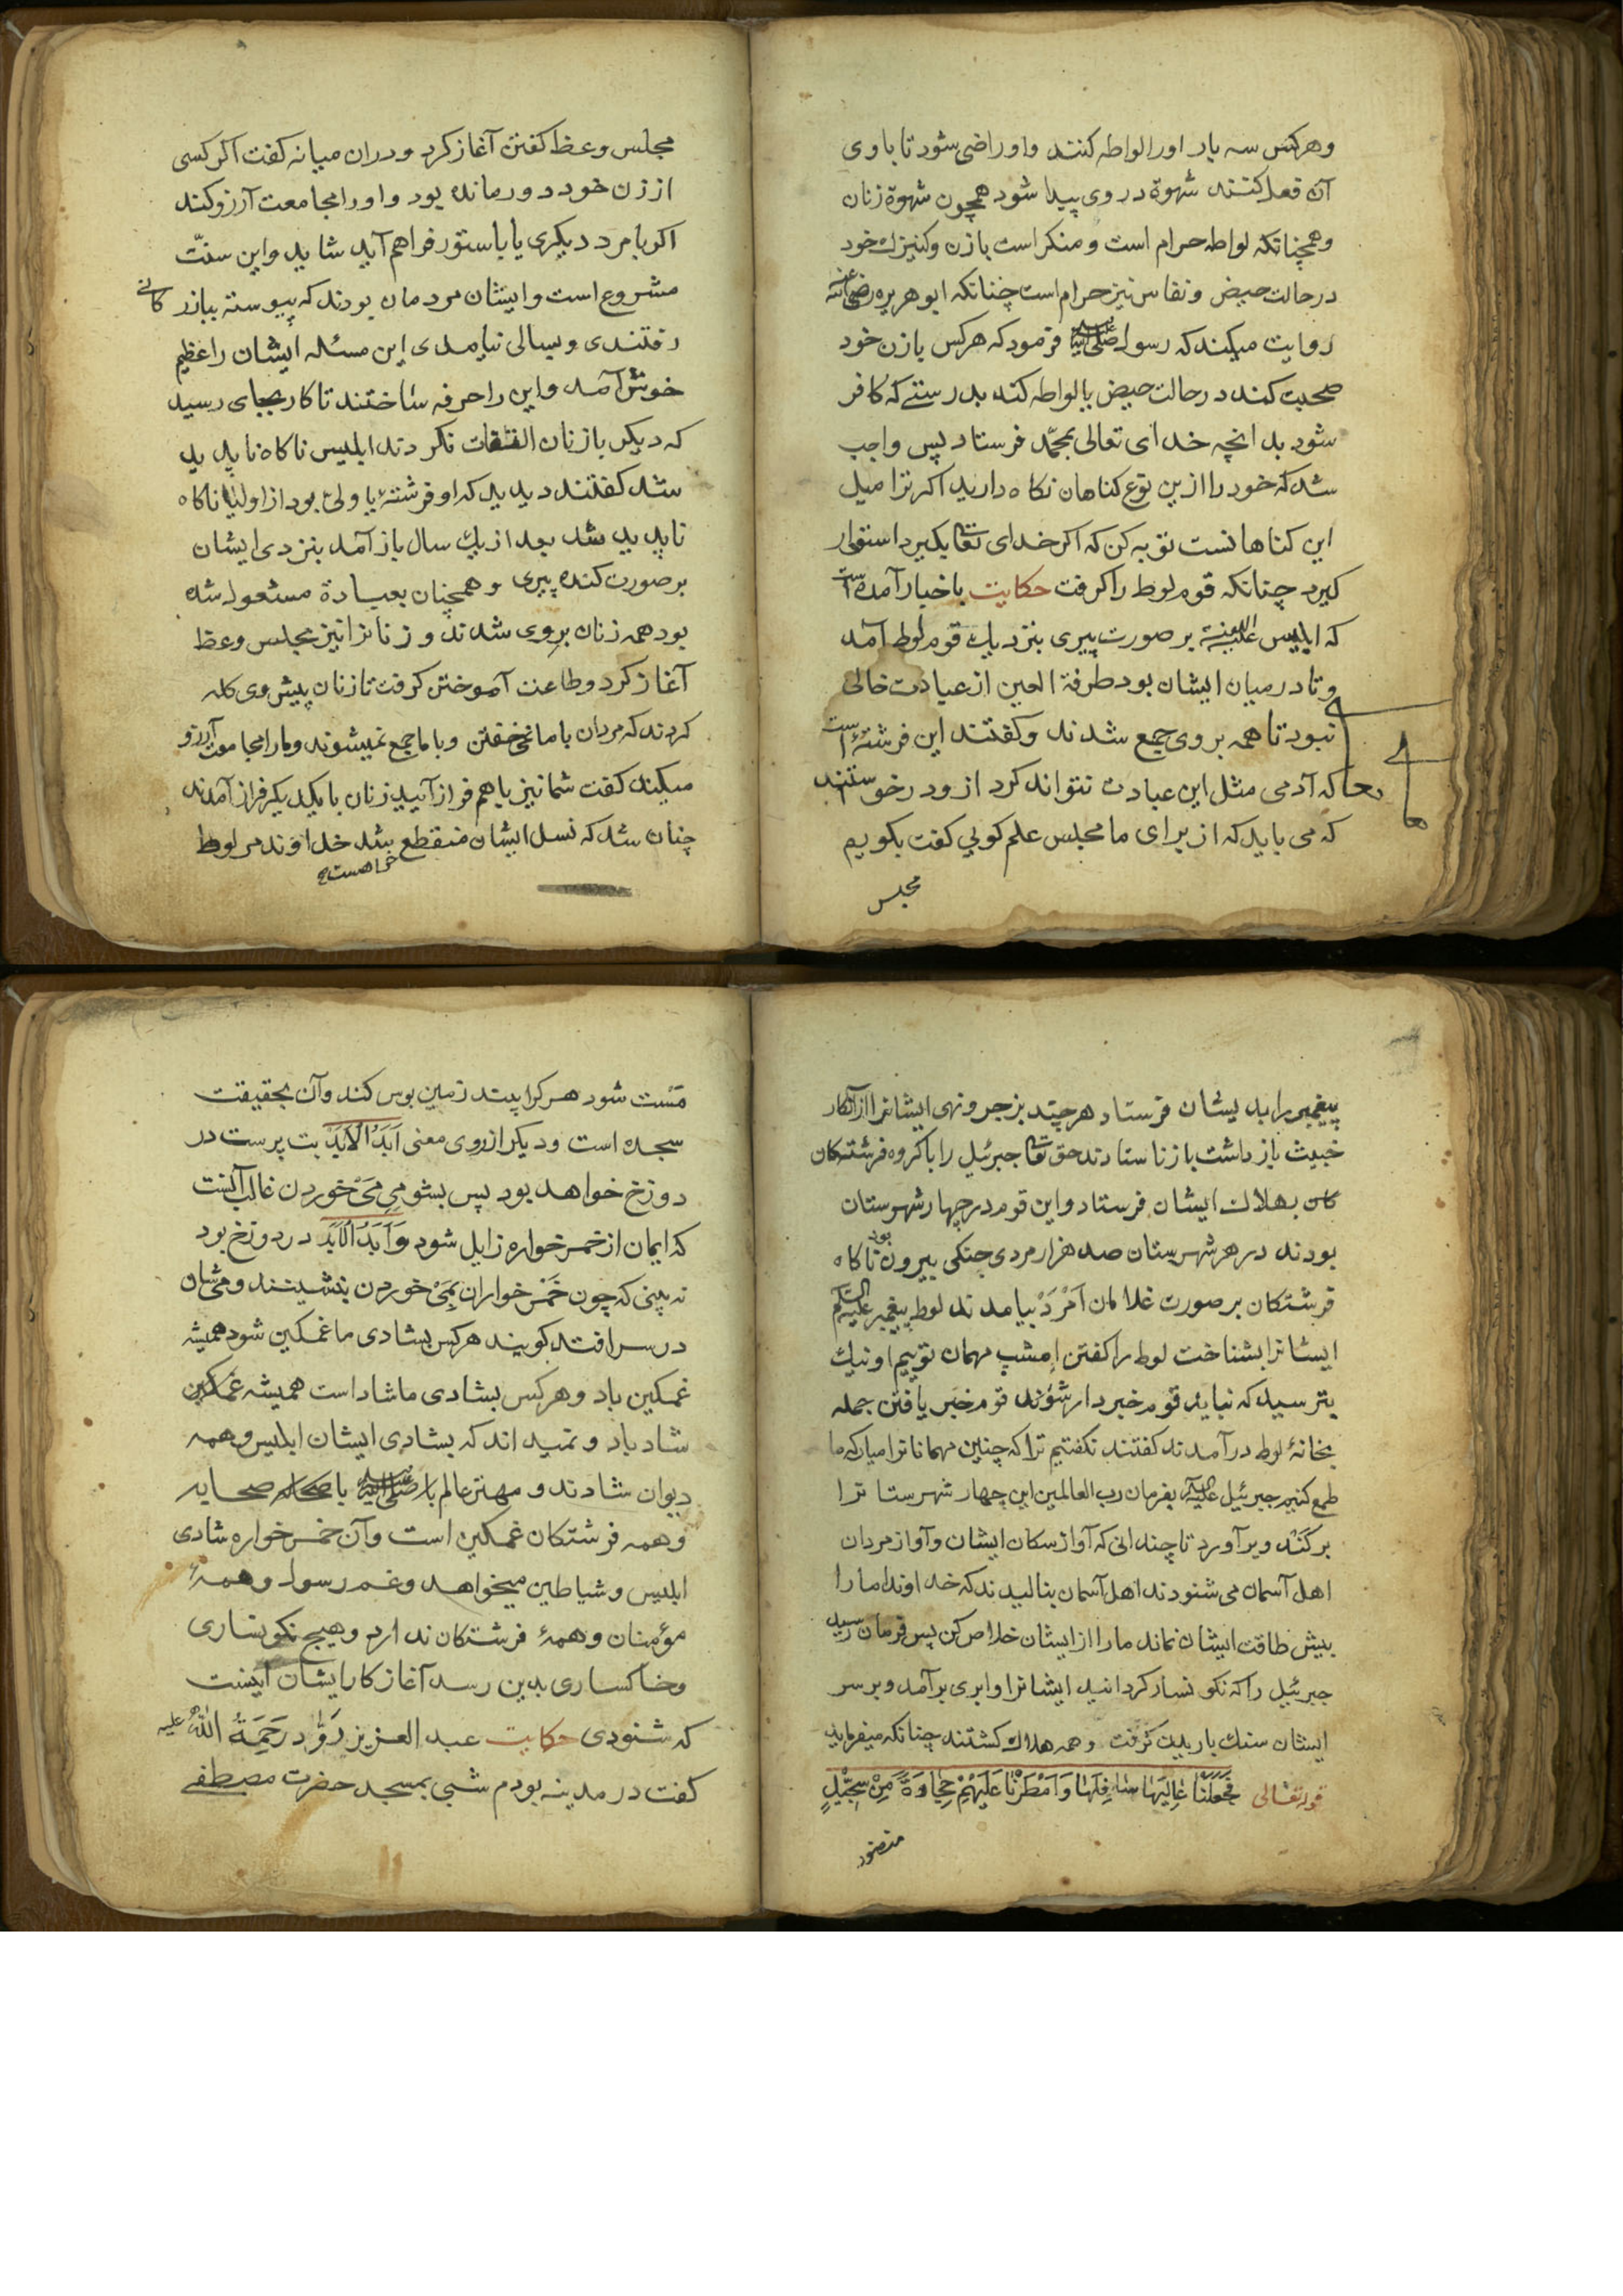 وهرکس سه بار اورا لواطه کنند واو راضی شود تا با وی
آن فعل کنند شهوة در وی پیدا شود همچون شهوة زنان
وهمچنانکه لواطه حرام است ومنکر است با زن وکنیزک خود
در حالت حیض ونفاس نیز حرام است چنانکه ابو هریره رضی الله عنه
روایت میکند که رسول صلی الله علیه وسلم فرمود که هرکس با زن خود
صحبت کند در حالت حیض یا لواطه کند بدرستے که کافر
شود بدانچه خدای تعالی بمحمّد فرستاد پس واجب
شد که خود را ازین نوع کناهان نکاه دارید اکر ترا میل
این کناهانست توبه کن که اکر خدای تعا بکیرد استوار
کیرد چنانکه قوم لوط را کرفت حکایت باخبار آمده است
که ابلیس علیه اللعنة بر صورت پیری بنزدیک قوم لوط آمد
وتا در میان ایشان بود طرفة العین از عبادت خالی
نبود تا همه بر وی جمع شدند وکفتند این فرشتۀ است
که آدمی مثل این عبادت نتواند کرد ازو درخواستند
که می باید که از برای ما مجلس علم کویی کفت بکویم
مجلس
مجلس وعظ کفتن آغاز کرد ودران میانه کفت اکر کسی
از زن خود دور مانده بود واورا مجامعت آرزو کند
اکر با مرد دیکری یا با ستور فراهم آید شاید واین سنّت
مشروع است وایشان مردمان بودند که پیوسته ببازرکانے
رفتندی وبسالی نیامدی این مسئله ایشان را عظیم
خوش آمد واین را حرفه ساختند تا کار بجای رسید
که دیکر با زنان التفات نکردند ابلیس ناکاه ناپدید
شد کفتند دیدید که او فرشتۀ یا ولی بود از اولیا ناکاه
ناپدید شد بعد از یک سال باز آمد بنزدی ایشان
بر صورت کنده پیری وهمچنان بعبادة مشغول شده
بود همه زنان بروی شدند وزنانرا نیز مجلس وعظ
آغاز کرد وطاعت آموختن کرفت تا زنان پیش وی کله
کردند که مردان با ما نمی خفتن وبا ما جمع نمیشوند ومارا مجامعت آرزو
میکند کفت شما نیز با هم فراز آیید زنان با یکدیکر فراز آمدند
چنان شد که نسل ایشان منقطع شد خداوند مر لوط
پیغمبر را بدیشان فرستاد هرچند بزجر ونهی ایشانرا از آن کار
خبیث باز داشت باز نا ستادند حق تعا جبرئیل را با کروه فرشتکان
بهلاک ایشان فرستاد واین قوم در چهار شهرستان
بودند در هر شهرستان صد هزار مردی جنکی بیرون بود ناکاه
فرشتکان بر صورت غلامان اَمْرَدْ بیامدند لوط پیغمبر علیه السلام
ایشانرا بشناخت لوط را کفتن امشب مهمان توییم او نیک
بترسید که نباید قوم خبردار شوند قوم خبر یافتن جمله
بخانۀ لوط درآمدند کفتند نکفتیم ترا که چنین مهمانانرا میار که ما
طمع کنیم جبرئیل علیه السلام بفرمان رب العالمین این چهار شهرستانرا
برکند وبرآورد تا چندانی که آواز سکان ایشان وآواز مردان
اهل آسمان می شنودند اهل آسمان بنالیدند که خداوندا مارا
بیش طاقت ایشان نماند مارا از ایشان خلاص کن پس فرمان رسید
جبرئیل را که نکونسار کردانید ایشانرا وابری برآمد وبر سر
ایشان سنک باریدن کرفت وهمه هلاک کشتند چنانکه میفرماید
قوله تعالی فَجَعَلْنَا عَالِيَهَا سَافِلَهَا وَاَمْطَرْنَا عَلَيْهِمْ حِجَارَةً مِنْ سِجِّيْلٍ
منضود
مَسْت شود هرکرا بیند زمین بوس کند وآن بحقیقت
سجده است ودیکر از روی معنی اَبَدُ الْاَبَدْ بت پرست در
دوزخ خواهد بود پس بشومیِ مَیْ خوردن غالب آنست
که ایمان از خمر خواره زایل شود وَاَبَدُ الْاَبَدْ در دوزخ بود
نه بینی که چون خَمر خواران بِمَیْ خوردن بنشینند ومی شان
در سر افتد کویند هرکس بشادی ما غمکین شود همیشه
غمکین باد وهرکس بشادی ما شاد است همیشه
شاد باد ونمیداند که بشادی ایشان ابلیس وهمه
دیوان شادند ومهتر عالم صلی الله علیه وسلم با صحابه
وهمه فرشتکان غمکین است وآن خمر خواره شادی
ابلیس وشیاطین میخواهد وغم رسول وهمۀ
مؤمنان وهمۀ فرشتکان ندارد وهیچ نکونساری
وخاکساری بدین رسد آغاز کار ایشان اینست
که شنودی حکایت عبد العزیز رَوّاد رَحمَةُ اللّٰهُ علیه
کفت در مدینه بودم شبی بمسجد حضرت مصطفے